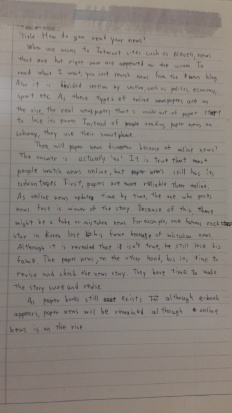 Title: How do you read your news?
When we access to Internet sites such as        , news
that are hot right now are appeared on the screen. To
read what I want, you just search news from the     blog.
Also it is divided section by section, such as politics, economy,
sport etc. As these types of online newspapers are on
the rise, the real newspapers that is made out of paper start
to lose its power. Instead of people reading paper news on
subway, they use their smartphone.
Then, will paper news disappear because of online news?
The answer is actually 'no'. It is true that most
people watch news online, but paper news still has its
advantages. First, papers are more reliable than online.
As online news update time by time, the one who posts
news fast is     of the story. Because of this there
might be a fake or mistaken news. For example, one famous
star in Korea lose his fame because of mistaken news.
Although it is revealed that it isn't true, he still lose his
fame. The paper news, on the other hand, has its time to
revise and check the news story. They have time to make
the story sure and revise.
As paper books still exists though although e-book
appears, paper news will be remained although online
news is on the rise